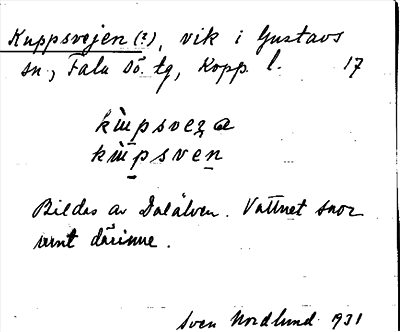 Kuppsvejen (?), vik i Gustavs
sn, Falu Sö. tg, Kopp. l. 17
kùpsveȥa
kùpsven
Bildas av Dalälven. Vattnet snor
runt därinne.
Sven Nordlund 1931